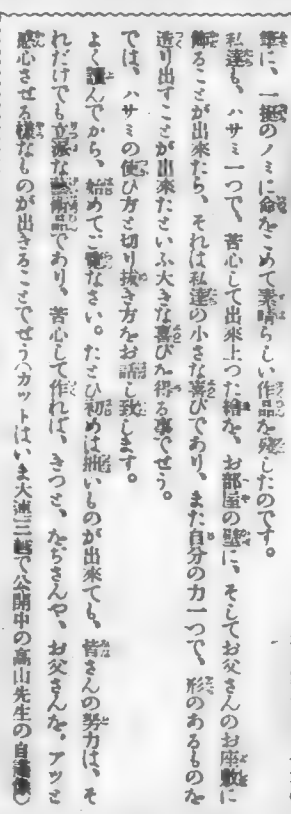 に、一挺のノミに命をこめて素晴らしい作品を殘したのです。
私達も、ハサミ一つで、苦心して出來上つた繪を、お部屋の壁に、そしてお父さんのお座敷に
飾ることが出來たら、それは私達の小さな喜びであり、また自分の力一つで、形のあるものを
造り出すことが出來たといふ大きな喜びを得る事でせう。
では、ハサミの使ひ方と切り抜き方をお話し致します。
よく讀んでから、始めてご覽なさい。たとひ初めは拙いものが出來ても、皆さんの努力は、そ
れだけでも立派な藝術品であり、苦心して作れば、きつと、をぢさんや、お父さんを。アツと
感心させる樣なものが出きることでせう(カットはいま大連三越で公開中の高山先生の自畵像)